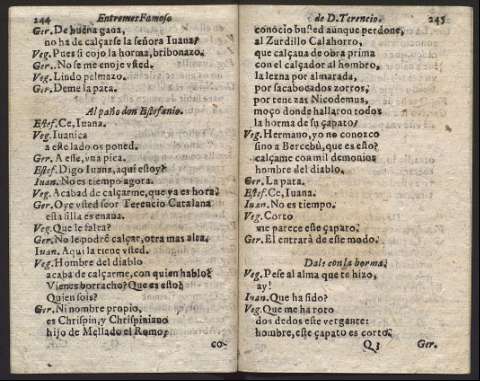 244 Entremes Famoso
Ger. De buena gana,
no ha de calçarse la señora Iuana?
Veg. Pues si cojo la horma, bribonazo.
Ger. No se me enoje vsted.
Veg. Lindo pelmazo.
Ger. Deme la pata.
Al paño don Estefanio.
Estef. Ce, Iuana.
Veg. Iuanica
a este lado os poned.
Ger. A este, vna pica.
Estef. Digo Iuana, aqui estoy?
Iuan. No es tiempo agora.
Veg. Acabad de calçarme, que ya es hora.
Ger. Oye vsted seor Terencio Catalana
esta silla es enana.
Veg. Que le falta?
Ger. No le podrè calçar, otra mas alta.
Iuan. Aqui la tiene vsted.
Veg. Hombre del diablo
acaba de calçarme, con quien hablo?
Vienes borracho? Que es esto?
Quien sois?
Ger. Ni nombre propio,
es Chrispin, y Chrispiniano
hijo de Mellado el Romo,
co-
de D. Terencio. 245
conociò busted aunque perdone,
al Zurdillo Calahorro,
que calçaua de obra prima
con el calçador al hombro,
la lezna por almarada,
por sacabocados zorros,
por tenazas Nicodemus,
moço donde hallaron todos
la horma de su çapato?
Veg. Hermano, yo no conozco
sino a Bercebù, que es esto?
calçame con mil demonios
hombre del diablo.
Ger. La pata.
Estef. Ce, Iuana.
Iuan. No es tiempo.
Veg. Corto
me parece este çapato.
Ger. El entrarà de este modo.
Dale con la horma.
Veg. Pese al alma que te hizo,
ay!
Iuan. Que ha sido?
Veg. Que me ha roto
dos dedos este vergante:
hombre, este çapato es corto.
Q 3 Ger.